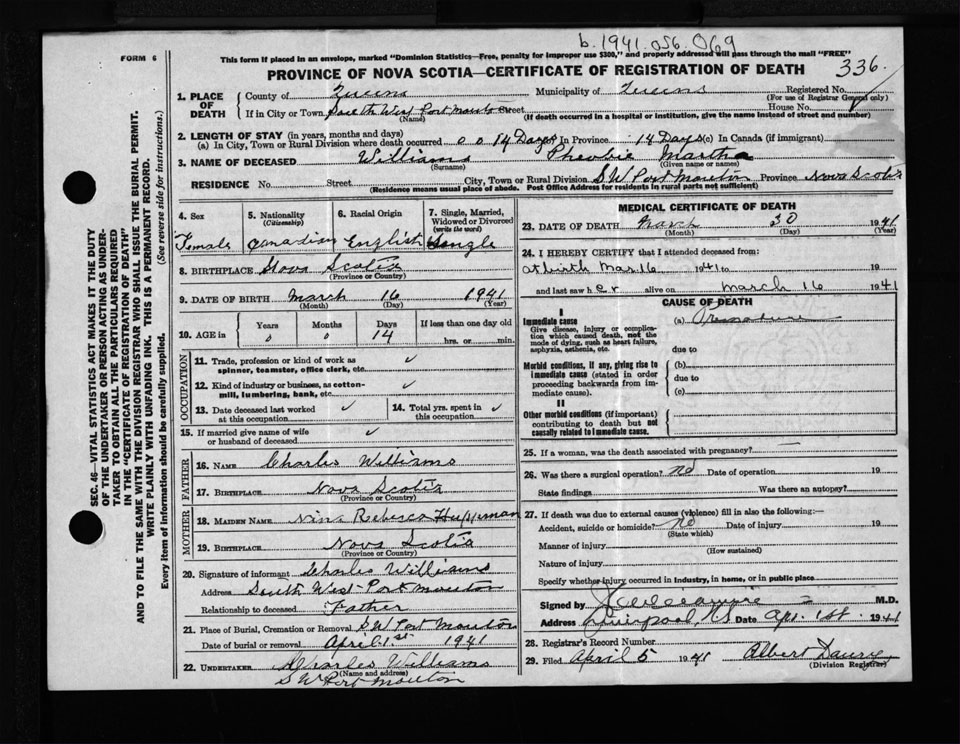 b. 1941.056.069
FORM 6
This form if placed in an envelope, marked "Dominion Statistics—Free, penalty for improper use $300," and properly addressed will pass through the mail "FREE"
PROVINCE OF NOVA SCOTIA—CERTIFICATE OF REGISTRATION OF DEATH
336.
1. PLACE OF DEATH
County of Queens Municipality of Queens Registered No.
(For use of Registrar General only)
If in City or Town South West Port Mouton Street House No.
(Name) (If death occurred in a hospital or institution, give the name instead of street and number)
2. LENGTH OF STAY (in years, months and days)
(a) In City, Town or Rural Division where death occurred 0 0 14 Days In Province 14 Days (c) In Canada (if immigrant)
3. NAME OF DECEASED Williams Pheobie Martha
(Surname) (Given name or names)
RESIDENCE No. Street City, Town or Rural Division S W Port Mouton Province Nova Scotia
(Residence means usual place of abode. Post Office Address for residents in rural parts not sufficient)
SEC. 46—VITAL STATISTICS ACT MAKES IT THE DUTY
OF THE UNDERTAKER OR PERSON ACTING AS UNDER-
TAKER TO OBTAIN ALL THE PARTICULARS REQUIRED
IN THE "CERTIFICATE OF REGISTRATION OF DEATH"
AND TO FILE THE SAME WITH THE DIVISION REGISTRAR WHO SHALL ISSUE THE BURIAL PERMIT.
WRITE PLAINLY WITH UNFADING INK. THIS IS A PERMANENT RECORD.
Every item of information should be carefully supplied. (See reverse side for instructions.)
4. Sex 5. Nationality 6. Racial Origin 7. Single, Married,
(Citizenship) Widowed or Divorced
(write the word)
Female Canadian English Single
8. BIRTHPLACE Nova Scotia
(Province or Country)
9. DATE OF BIRTH March 16 1941
(Month) (Day) (Year)
10. AGE in Years Months Days If less than one day old
0 0 14 hrs. or min.
OCCUPATION
11. Trade, profession or kind of work as
spinner, teamster, office clerk, etc. ✓
12. Kind of industry or business, as cotton-
mill, lumbering, bank, etc. ✓
13. Date deceased last worked ✓ 14. Total yrs. spent in ✓
at this occupation this occupation
15. If married give name of wife ✓
or husband of deceased
FATHER
16. NAME Charles Williams
17. BIRTHPLACE Nova Scotia
(Province or Country)
MOTHER
18. MAIDEN NAME Nina Rebecca Huppman
19. BIRTHPLACE Nova Scotia
(Province or Country)
20. Signature of informant Charles Williams
Address South West Port Mouton
Relationship to deceased Father
21. Place of Burial, Cremation or Removal S W Port Mouton
Date of burial or removal April 1st 1941
22. UNDERTAKER Charles Williams
(Name and address)
S W Port Mouton
MEDICAL CERTIFICATE OF DEATH
23. DATE OF DEATH March 30 1941
(Month) (Day) (Year)
24. I HEREBY CERTIFY that I attended deceased from:
at birth Mar 16 1941 to 19
and last saw her alive on March 16 1941
CAUSE OF DEATH
I
Immediate cause (a) Premature
Give disease, injury or complica-
tion which caused death, not the
mode of dying, such as heart failure,
asphyxia, asthenia, etc.
due to
Morbid conditions, if any, giving rise to (b)
immediate cause (stated in order due to
proceeding backwards from im-
mediate cause). (c)
II
Other morbid conditions (if important)
contributing to death but not
causally related to immediate cause.
25. If a woman, was the death associated with pregnancy? —
26. Was there a surgical operation? no Date of operation 19
State findings Was there an autopsy?
27. If death was due to external causes (violence) fill in also the following:—
Accident, suicide or homicide? no Date of injury 19
(State which)
Manner of injury
(How sustained)
Nature of injury
Specify whether injury occurred in industry, in home, or in public place
Signed by M.D.
Address Liverpool, NS Date Apr. 1st. 1941
28. Registrar's Record Number
29. Filed April 5 1941 Albert
(Division Registrar)